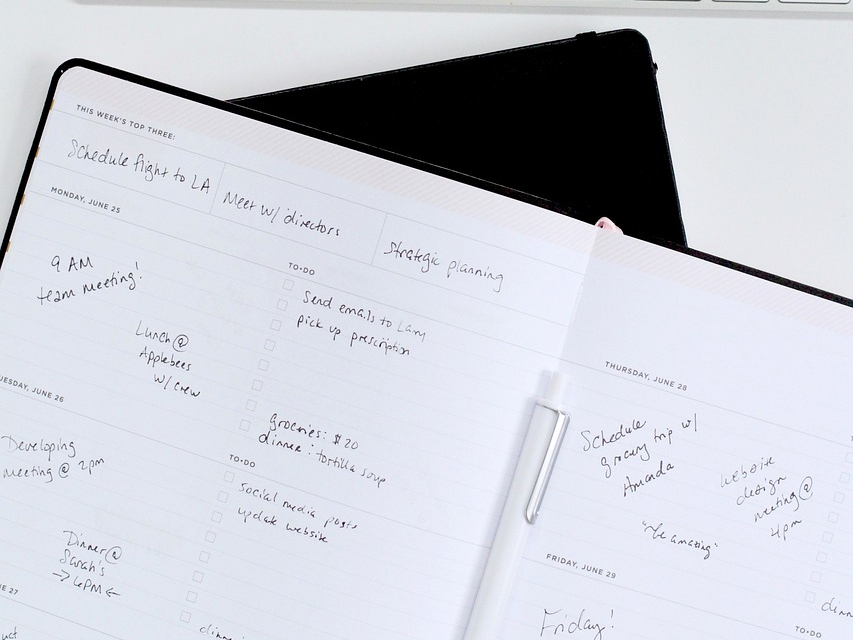 THIS WEEK'S TOP THREE:
Schedule flight to LA
Meet w/ directors
Strategic planning
MONDAY, JUNE 25
9 AM
team meeting!
Lunch @
Applebees
w/ crew
TO-DO
Send emails to Larry
pick up prescription
groceries: $20
dinner: tortilla soup
UESDAY, JUNE 26
Developing
meeting @ 2pm
Dinner @
Sarah's
→ 6PM ←
TO-DO
social media posts
update website
E 27
THURSDAY, JUNE 28
Schedule
grocery trip w/
Amanda
website
design
meeting @
4pm
"be amazing"
FRIDAY, JUNE 29
Friday!
TO-DO